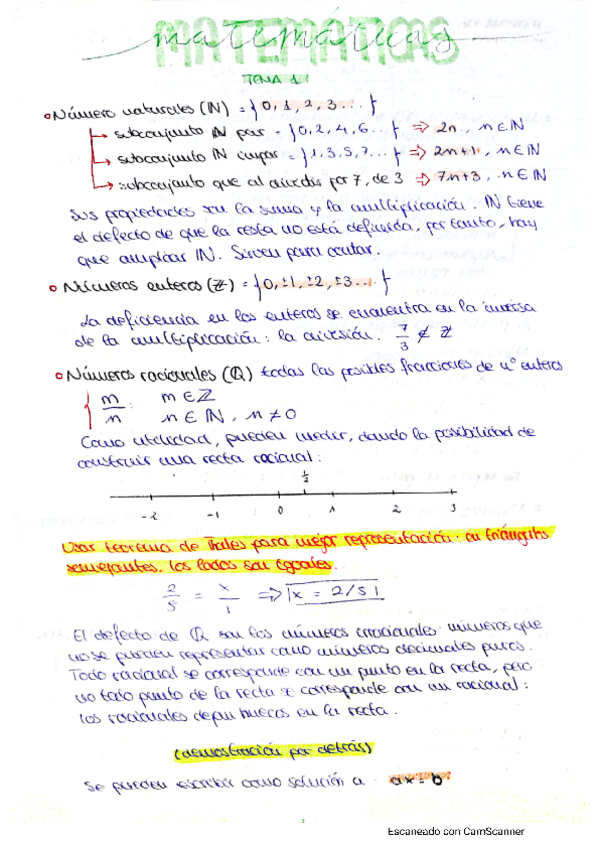 MATEMÁTICAS
matemáticas
TEMA 1.1
• Número naturales (ℕ) = {0, 1, 2, 3... }
↳ subconjunto ℕ par = {0, 2, 4, 6... } ⇒ 2n, n ∈ ℕ
↳ subconjunto ℕ impar = {1, 3, 5, 7... } ⇒ 2n+1, n ∈ ℕ
↳ subconjunto que al dividir por 7, de 3 ⇒ 7n+3, n ∈ ℕ
Sus propiedades son la suma y la multiplicación. ℕ tiene
el defecto de que la resta no está definida, por tanto, hay
que ampliar ℕ. Sirven para contar.
• Números enteros (ℤ) = {0, ±1, ±2, ±3... }
La deficiencia en los enteros se encuentra en la inversa
de la multiplicación: la división. 7/3 ∉ ℤ
• Números racionales (ℚ) todas las posibles fracciones de nº enteros
{ m/n m ∈ ℤ
n ∈ ℕ, n ≠ 0
Como utilidad, pueden medir, dando la posibilidad de
construir una recta racional:
1/2
-2 -1 0 1 2 3
Usar teorema de Thales para mejor representación. en triángulos
semejantes, los lados son iguales.
2/5 = x/1 ⇒ x = 2/5
El defecto de ℚ son los números irracionales. números que
no se pueden representar como números decimales puros.
Todo racional se corresponde con un punto en la recta, pero
no todo punto de la recta se corresponde con un racional:
los racionales dejan huecos en la recta.
(demostración por detrás)
Se pueden escribir como solución a ax = b
Escaneado con CamScanner